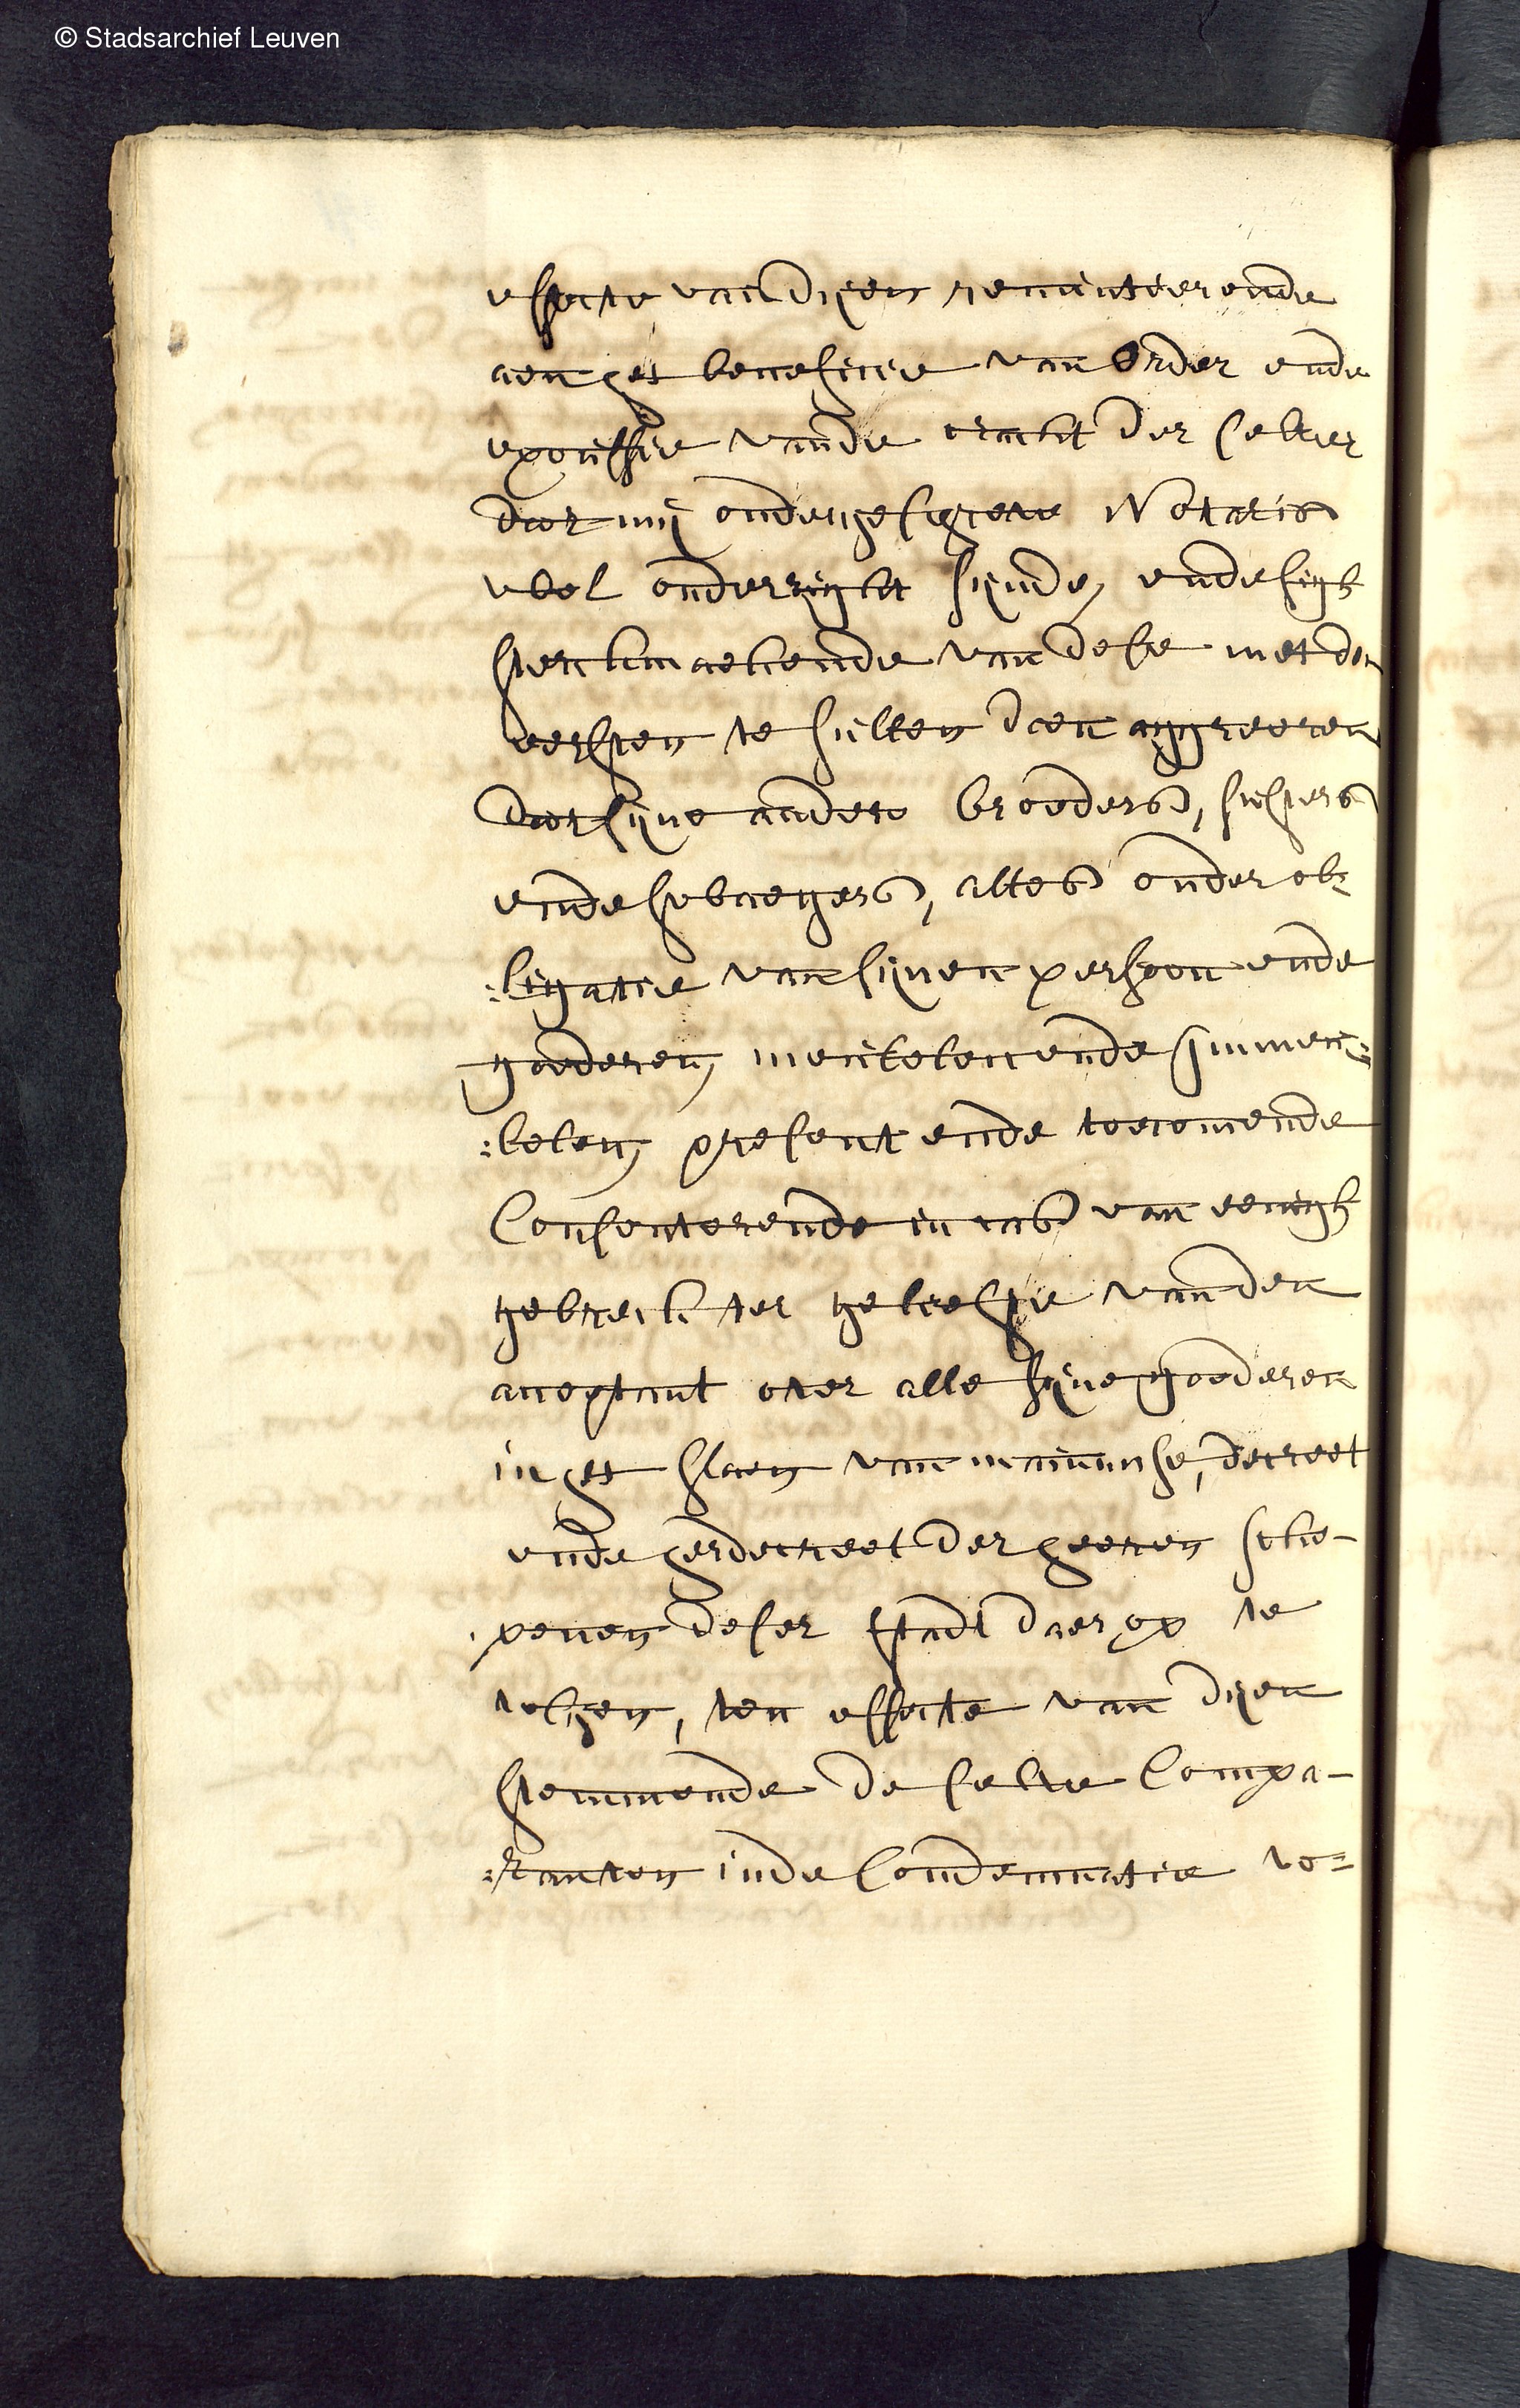 © Stadsarchief Leuven
effecte van dijen renuntieerende
aen het beneficie van order ende
excussie vande cracht der selver
door mij ondergescrevene Notaris
wel onderright sijnde, ende sigh
sterckmaekende van dese met den
eersten te sullen doen aggreeren
door sijne andere broeders, susters
ende swaegers, alles onder ob-
:ligatie van sijnen persoon ende
goederen, meubelen ende immeu:
:belen, present ende toecomende
Consenterende in cas van eenigh
gebreck ter geliefte vanden
acceptant over alle sijne goederen
in het slaen van mainmise, decreet
ende herdecreet der heeren sche-
penen deser stadt daer op te
volgen, ten effecte van dijen
stemmende de selve Compa-
:ranten inde Condemnatie vo=